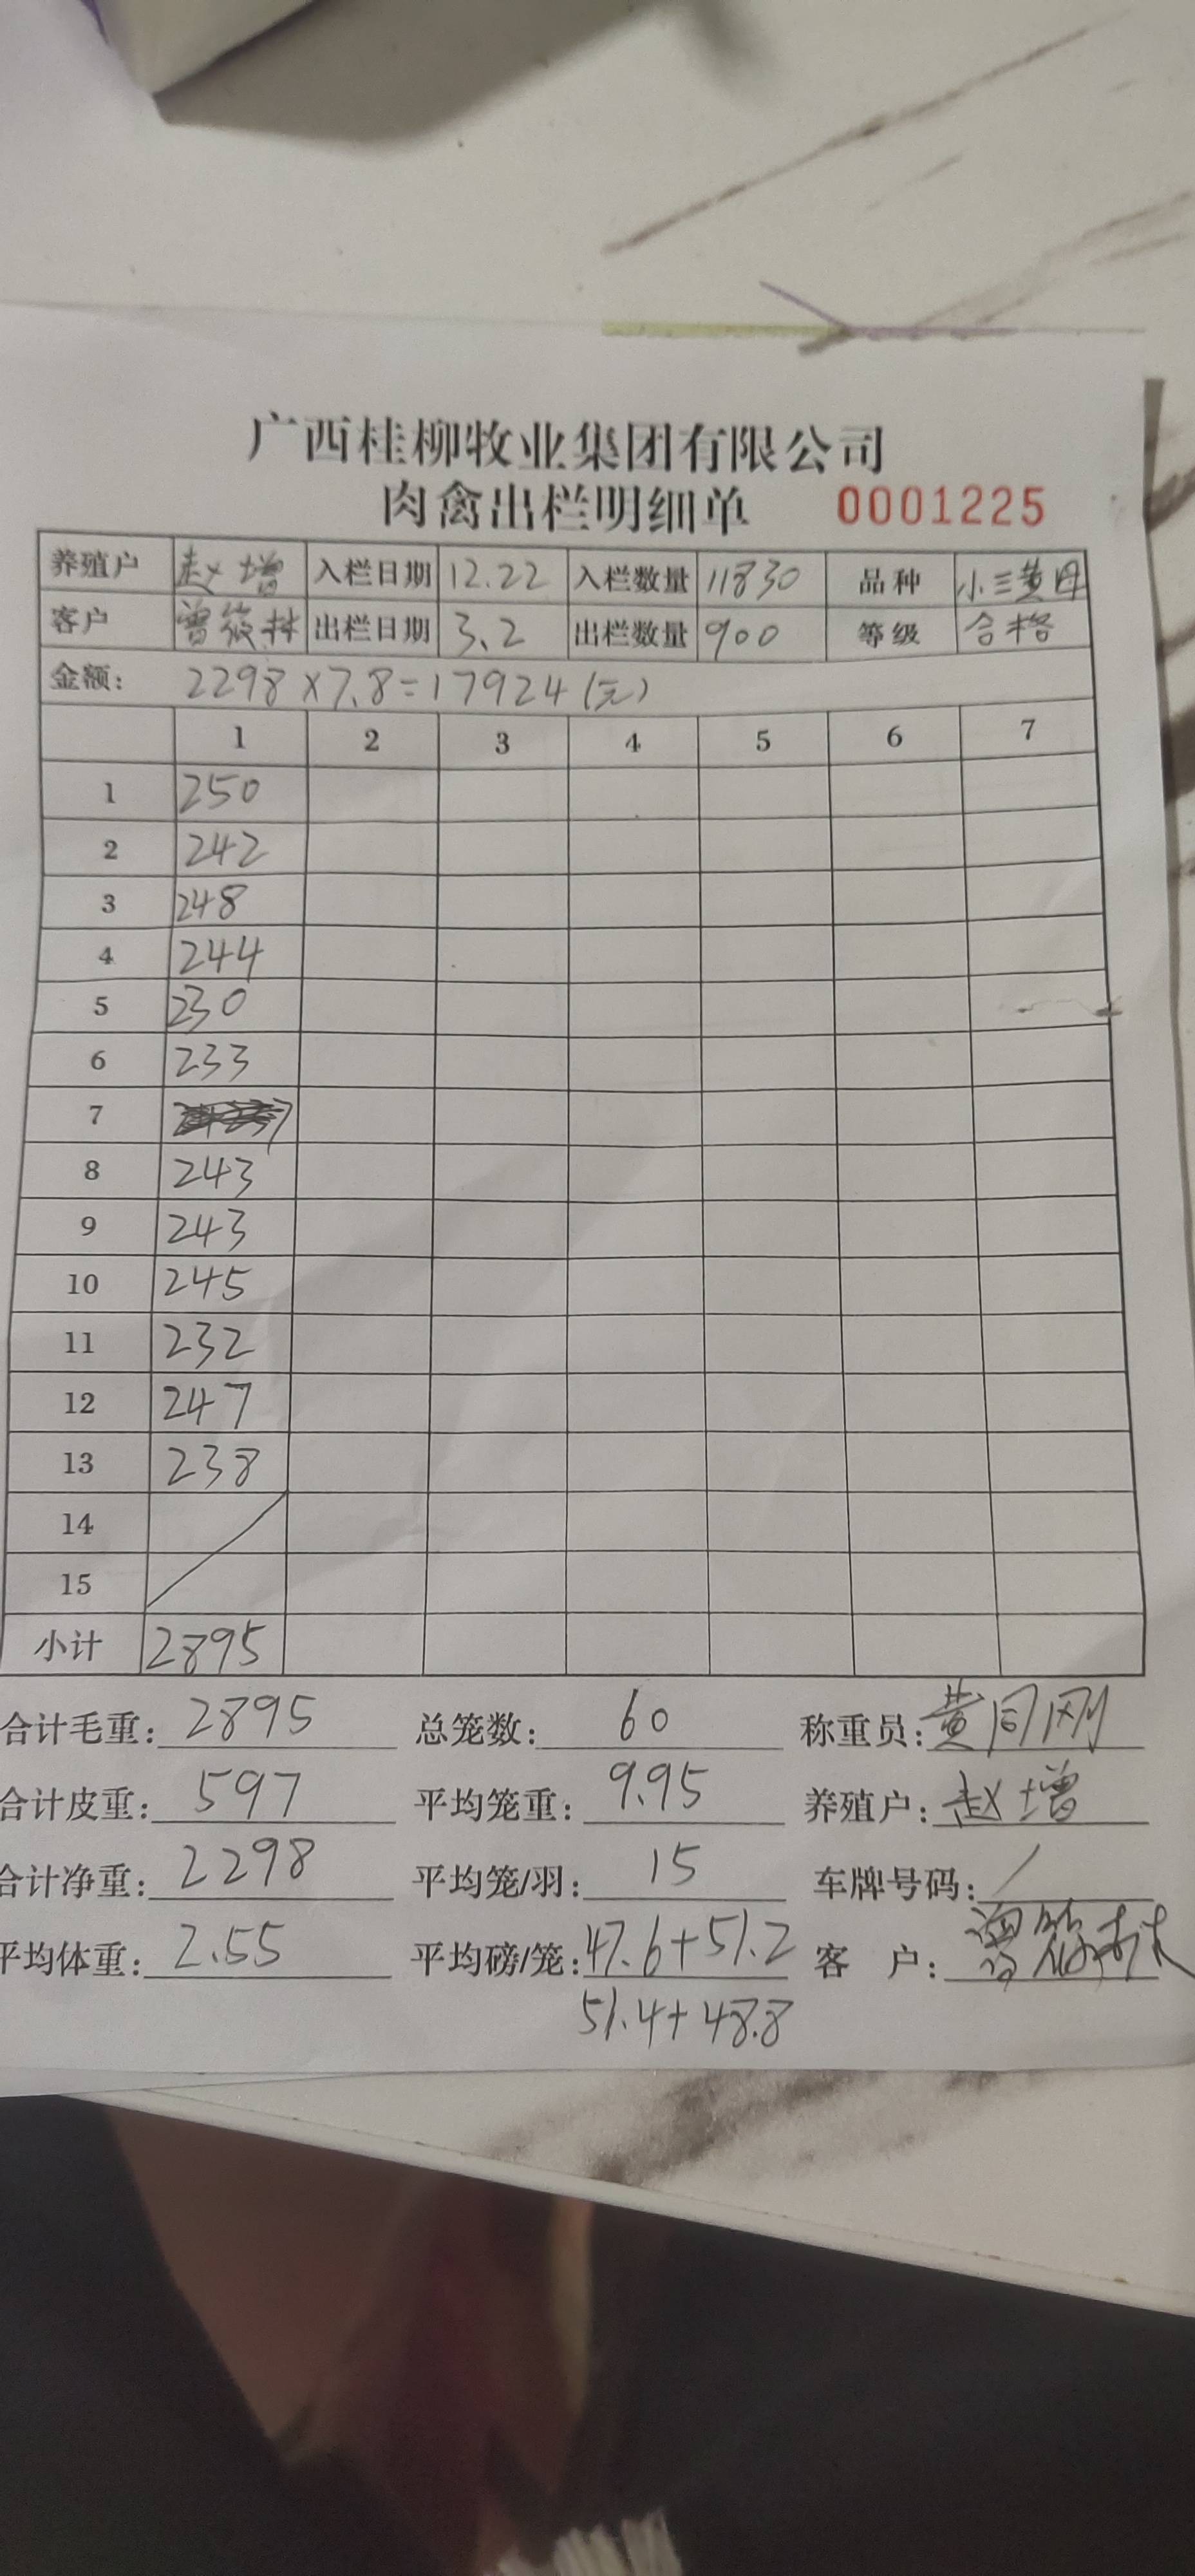 广西桂柳牧业集团有限公司
肉禽出栏明细单 0001225
养殖户 赵增 入栏日期 12.22 入栏数量 11830 品种 小三黄母
客户 曾筱林 出栏日期 3.2 出栏数量 900 等级 合格
金额: 2298×7.8=17924(元)
1 2 3 4 5 6 7
1 250
2 242
3 248
4 244
5 230
6 233
7
8 243
9 243
10 245
11 232
12 247
13 238
14
15
小计 2895
合计毛重: 2895 总笼数: 60 称重员: 黄同刚
合计皮重: 597 平均笼重: 9.95 养殖户: 赵增
合计净重: 2298 平均笼/羽: 15 车牌号码: /
平均体重: 2.55 平均磅/笼: 47.6+51.2 客户: 曾筱林
51.4+48.8